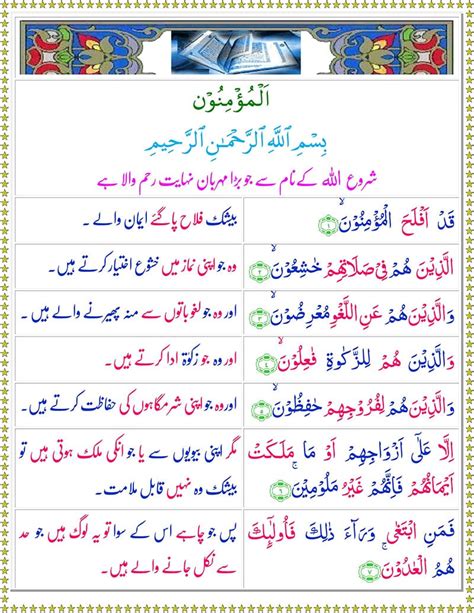 اَلْمُؤْمِنُوْن
بِسْمِ اللَّهِ الرَّحْمَٰنِ الرَّحِيمِ
شروع اللہ کے نام سے جو بڑا مہربان نہایت رحم والا ہے
قَدْ اَفْلَحَ الْمُؤْمِنُوْنَۙ ﴿۱﴾
بیشک فلاح پا گئے ایمان والے ۔
الَّذِيْنَ هُمْ فِيْ صَلَاتِهِمْ خٰشِعُوْنَۙ ﴿۲﴾
وہ جو اپنی نماز میں خشوع اختیار کرتے ہیں۔
وَالَّذِيْنَ هُمْ عَنِ اللَّغْوِ مُعْرِضُوْنَۙ ﴿۳﴾
اور وہ جو لغو باتوں سے منہ پھیرنے والے ہیں ۔
وَالَّذِيْنَ هُمْ لِلزَّكٰوةِ فٰعِلُوْنَۙ ﴿۴﴾
اور وہ جو زکوٰۃ ادا کرتے ہیں۔
وَالَّذِيْنَ هُمْ لِفُرُوْجِهِمْ حٰفِظُوْنَۙ ﴿۵﴾
اور وہ جو اپنی شرمگاہوں کی حفاظت کرتے ہیں۔
اِلَّا عَلٰٓى اَزْوَاجِهِمْ اَوْ مَا مَلَكَتْ
اَيْمَانُهُمْ فَاِنَّهُمْ غَيْرُ مَلُوْمِيْنَۚ ﴿۶﴾
مگر اپنی بیویوں سے یا جو انکی ملک ہوتی ہیں تو
بیشک وہ نہیں قابل ملامت۔
فَمَنِ ابْتَغٰى وَرَآءَ ذٰلِكَ فَاُولٰٓئِكَ
هُمُ الْعٰدُوْنَۚ ﴿۷﴾
پس جو چاہے اس کے سوا تو یہ لوگ ہیں جو حد
سے نکل جانے والے ہیں۔